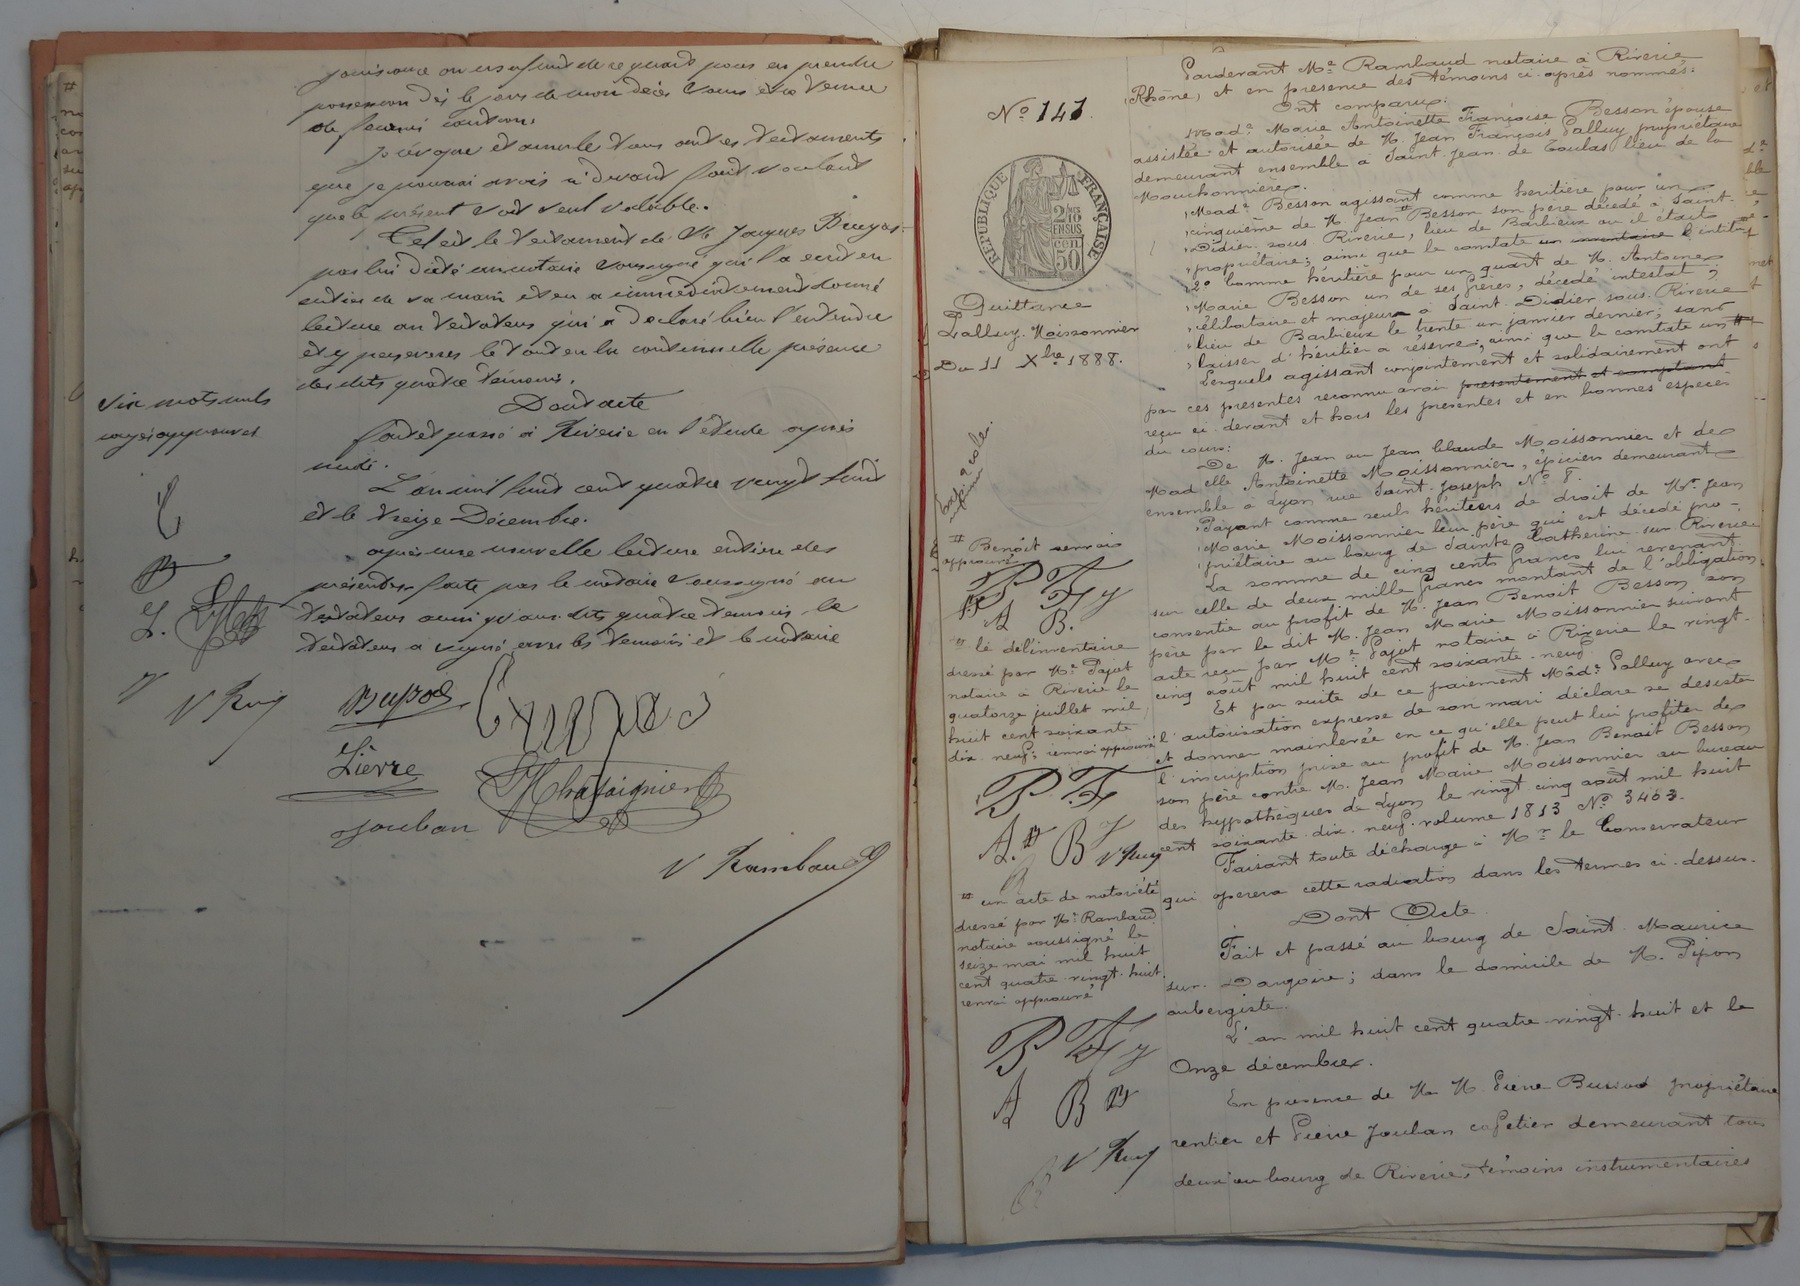 jouissance ou usufruit de ce quart pour en prendre
possession dès le jour de mon décès sans être tenue
de fournir caution.
Je révoque et annule tous autres testaments
que je pourrai avoir ci devant fait voulant
que le présent soit seul valable.
Tel est le testament de M. Jacques
par lui dicté au notaire soussigné qui l'a écrit en
entier de sa main et en a immédiatement donné
lecture au testateur qui a déclaré bien l'entendre
et y persévérer le tout en la continuelle présence
des dits quatre témoins.
Dont acte
fait et passé à Riverie en l'étude après
midi.
L'an mil huit cent quatre vingt huit
et le treize Décembre.
après une nouvelle lecture entière des
présentes faite par le notaire soussigné au
testateur ainsi qu'aux dits quatre témoins le
testateur a signé avec les témoins et le notaire
Six mots nuls
rayés approuvés
Lièvre
Chataignier
Jouban
V Rambaud
Nº 141
RÉPUBLIQUE FRANÇAISE
2/10 EN SUS
50 cen
Quittance
Palluy Moissonnier
Du 11 Xbre 1888.
# Benoît renvoi
approuvé
P F y
A B.
# lé de l'inventaire
dressé par Me Pajot
notaire à Riverie le
quatorze juillet mil
huit cent soixante
dix neuf; renvoi approuvé
P F y
A. B
# un acte de notoriété
dressé par Me Rambaud
notaire soussigné le
seize mai mil huit
cent quatre vingt huit.
renvoi approuvé
P F y
A B
Pardevant Me Rambaud notaire à Riverie
(Rhône) et en présence des témoins ci-après nommés:
Ont comparu:
Made Marie Antoinette Françoise Besson épouse
assistée et autorisée de M. Jean François Palluy propriétaire
demeurant ensemble à Saint Jean de Toulas lieu de la
Mouchonnière.
Made Besson agissant comme héritière pour un
cinquième de M. Jean # Besson son père décédé à Saint
Didier sous Riverie, lieu de Barbieux où il était
propriétaire; ainsi que le constate un inventaire l'intitu #
2º Comme héritière pour un quart de M. Antoine
Marie Besson un de ses frères, décédé intestat,
célibataire et majeur à Saint Didier sous Riverie
lieu de Barbieux le trente un janvier dernier; sans
laisser d'héritier à réserve, ainsi que le constate un #
Lesquels agissant conjointement et solidairement ont
par ces présentes reconnu avoir présentement et comptant
reçu ci-devant et hors les présentes et en bonnes espèces
du cours:
De M. Jean ou Jean Claude Moissonnier et de
Mad elle Antoinette Moissonnier, épiciers demeurant
ensemble à Lyon rue Saint Joseph Nº 8.
Payant comme seuls héritiers de droit de Mr. Jean
Marie Moissonnier leur père qui est décédé pro-
priétaire au bourg de Sainte Catherine sur Riverie
La somme de cinq cents francs lui revenant
sur celle de deux mille francs montant de l'obligation
consentie au profit de M. Jean Benoit Besson son
père par le dit M. Jean Marie Moissonnier suivant
acte reçu par Me Pajot notaire à Riverie le vingt-
cinq août mil huit cent soixante neuf
Et par suite de ce paiement Made Palluy avec
l'autorisation expresse de son mari déclare se désister
et donner mainlevée en ce qu'elle peut lui profiter de
l'inscription prise au profit de M. Jean Benoit Besson
son père contre M. Jean Marie Moissonnier au bureau
des hypothèques de Lyon le vingt cinq août mil huit
cent soixante dix neuf volume 1813 Nº 3403.
Faisant toute décharge à Mr le Conservateur
qui opérera cette radiation dans les termes ci-dessus.
Dont Acte
Fait et passé au bourg de Saint Maurice
sur Dargoire; dans le domicile de M. Pipon
aubergiste.
L'an mil huit cent quatre-vingt-huit et le
Onze décembre.
En présence de M. M. Pierre propriétaire
rentier et Pierre Jouban cafetier demeurant tous
deux au bourg de Riverie, témoins instrumentaires